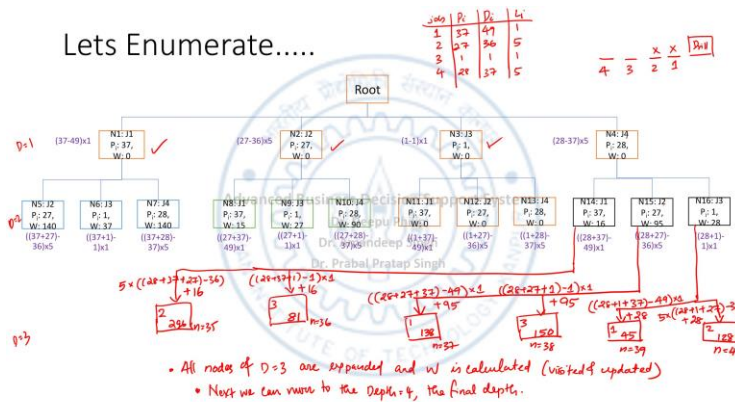 Lets Enumerate.....
jobs Pi Di Li
1 37 49 1
2 27 36 5
3 1 1 1
4 28 37 5
x x
4 3 2 1
Root
D=1
(37-49)x1
N1: J1
Pj: 37,
W: 0
(27-36)x5
N2: J2
Pj: 27,
W: 0
(1-1)x1
N3: J3
Pj: 1,
W: 0
(28-37)x5
N4: J4
Pj: 28,
W: 0
D=2
N5: J2
Pj: 27,
W: 140
N6: J3
Pj: 1,
W: 37
N7: J4
Pj: 28,
W: 140
N8: J1
Pj: 37,
W: 15
N9: J3
Pj: 1,
W: 27
N10: J4
Pj: 28,
W: 90
N11: J1
Pj: 37,
W: 0
N12: J2
Pj: 27,
W: 0
N13: J4
Pj: 28,
W: 0
N14: J1
Pj: 37,
W: 16
N15: J2
Pj: 27,
W: 95
N16: J3
Pj: 1,
W: 28
((37+27)-36)x5
((37+1)-1)x1
((37+28)-37)x5
((27+37)-49)x1
((27+1)-1)x1
((27+28)-37)x5
((1+37)-49)x1
((1+27)-36)x5
((1+28)-37)x5
((28+37)-49)x1
((28+27)-36)x5
((28+1)-1)x1
Dr. Prabal Pratap Singh
5x((28+37+27)-36)
+16
((28+37+1)-1)x1
+16
((28+27+37)-49)x1
+95
((28+27+1)-1)x1
+95
((28+1+37)-49)x1
+28
5x((28+1+27)-3
+28
D=3
2
296
n=35
3
81
n=36
1
138
n=37
3
150
n=38
1
45
n=39
2
128
n=4
• All nodes of D=3 are expanded and W is calculated (visited & updated)
• Next we can move to the Depth=4, the final depth.